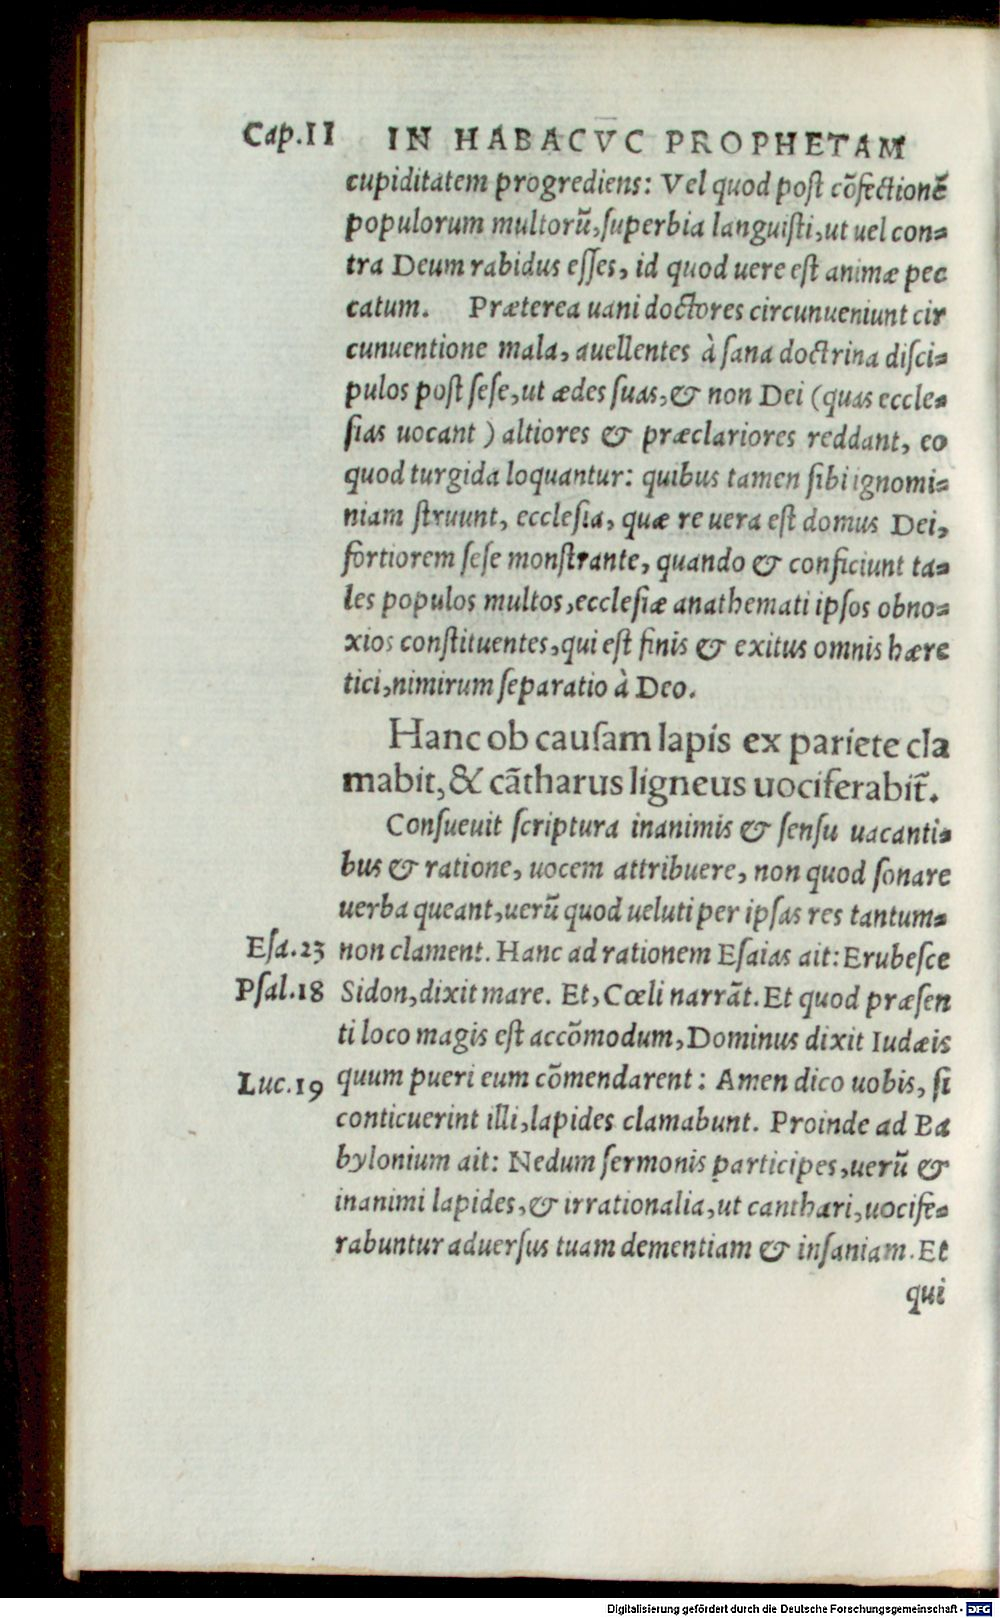 Cap.II IN HABACVC PROPHETAM
cupiditatem progrediens: Vel quod poſt cõfectionẽ
populorum multorũ, ſuperbia languiſti, ut uel con=
tra Deum rabidus eſſes, id quod uere eſt animæ pec
catum. Præterea uani doctores circunueniunt cir
cunuentione mala, auellentes à ſana doctrina diſci=
pulos poſt ſeſe, ut ædes ſuas, & non Dei (quas eccle=
ſias uocant) altiores & præclariores reddant, eo
quod turgida loquantur: quibus tamen ſibi ignomi=
niam ſtruunt, eccleſia, quæ re uera eſt domus Dei,
fortiorem ſeſe monſtrante, quando & conficiunt ta=
les populos multos, eccleſiæ anathemati ipſos obno=
xios conſtituentes, qui eſt finis & exitus omnis hære
tici, nimirum ſeparatio à Deo.
Hanc ob cauſam lapis ex pariete cla
mabit, & cãtharus ligneus uociferabit̃.
Conſueuit ſcriptura inanimis & ſenſu uacanti=
bus & ratione, uocem attribuere, non quod ſonare
uerba queant, uerũ quod ueluti per ipſas res tantum=
Eſa.23 non clament. Hanc ad rationem Eſaias ait: Erubeſce
Pſal.18 Sidon, dixit mare. Et, Cœli narrãt. Et quod præſen
ti loco magis eſt accõmodum, Dominus dixit Iudæis
Luc.19 quum pueri eum cõmendarent: Amen dico uobis, ſi
conticuerint illi, lapides clamabunt. Proinde ad Ba
bylonium ait: Nedum ſermonis participes, uerũ &
inanimi lapides, & irrationalia, ut canthari, uocife=
rabuntur aduerſus tuam dementiam & inſaniam. Et
qui
Digitalisierung gefördert durch die Deutsche Forschungsgemeinschaft - DFG